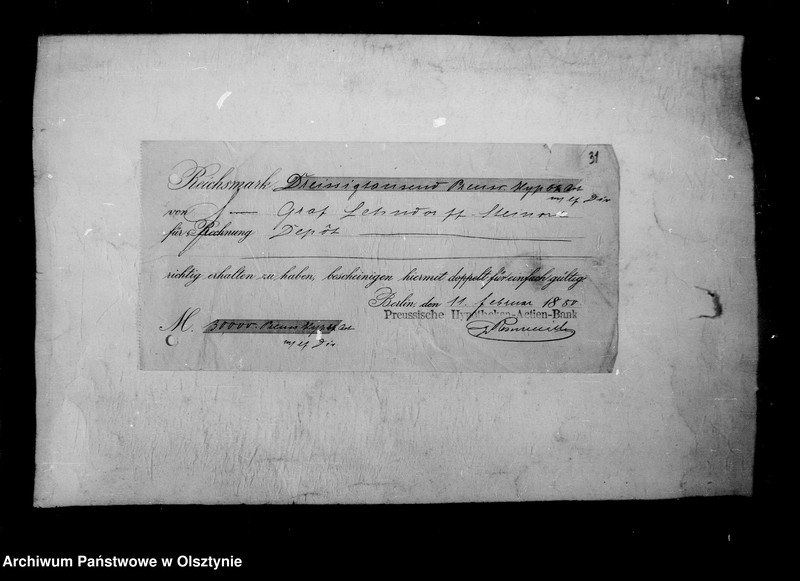 31
Reichsmark Dreissigtausend Preuss Hyp
von Graf Lehndorff Steinort
für Rechnung Depôt
richtig erhalten zu haben, bescheinigen hiermit doppelt für einfach gültig.
Berlin, den 11 Februar 18
Preussische Hypotheken-Actien-Bank
M. 30000.- Preuss Hyp
Archiwum Państwowe w Olsztynie